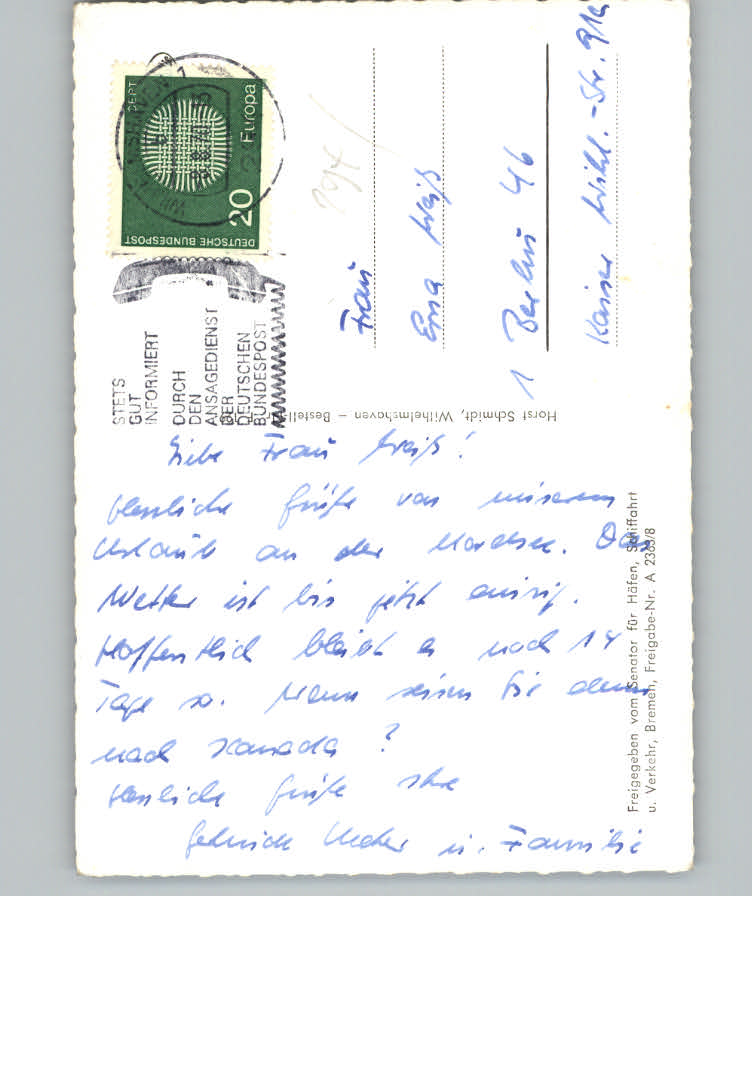 DEUTSCHE BUNDESPOST
20 Europa
CEPT
STETS
GUT
INFORMIERT
DURCH
DEN
ANSAGEDIENST
DER
DEUTSCHEN
BUNDESPOST
Frau
Erna Weiß
1 Berlin 46
Kaiser Wilh.-Str. 91a
Horst Schmidt, Wilhelmshaven – Bestell-Nr.
Liebe Frau Weiß!
Herzliche Grüße von unserem
Urlaub an der Nordsee. Das
Wetter ist bis jetzt
Hoffentlich bleibt es noch 14
Tage so. Wann reisen Sie denn
nach Kanada?
Herzliche Grüße Ihre
u. Familie
Freigegeben vom Senator für Häfen, Schiffahrt
u. Verkehr, Bremen, Freigabe-Nr. A 2363/8